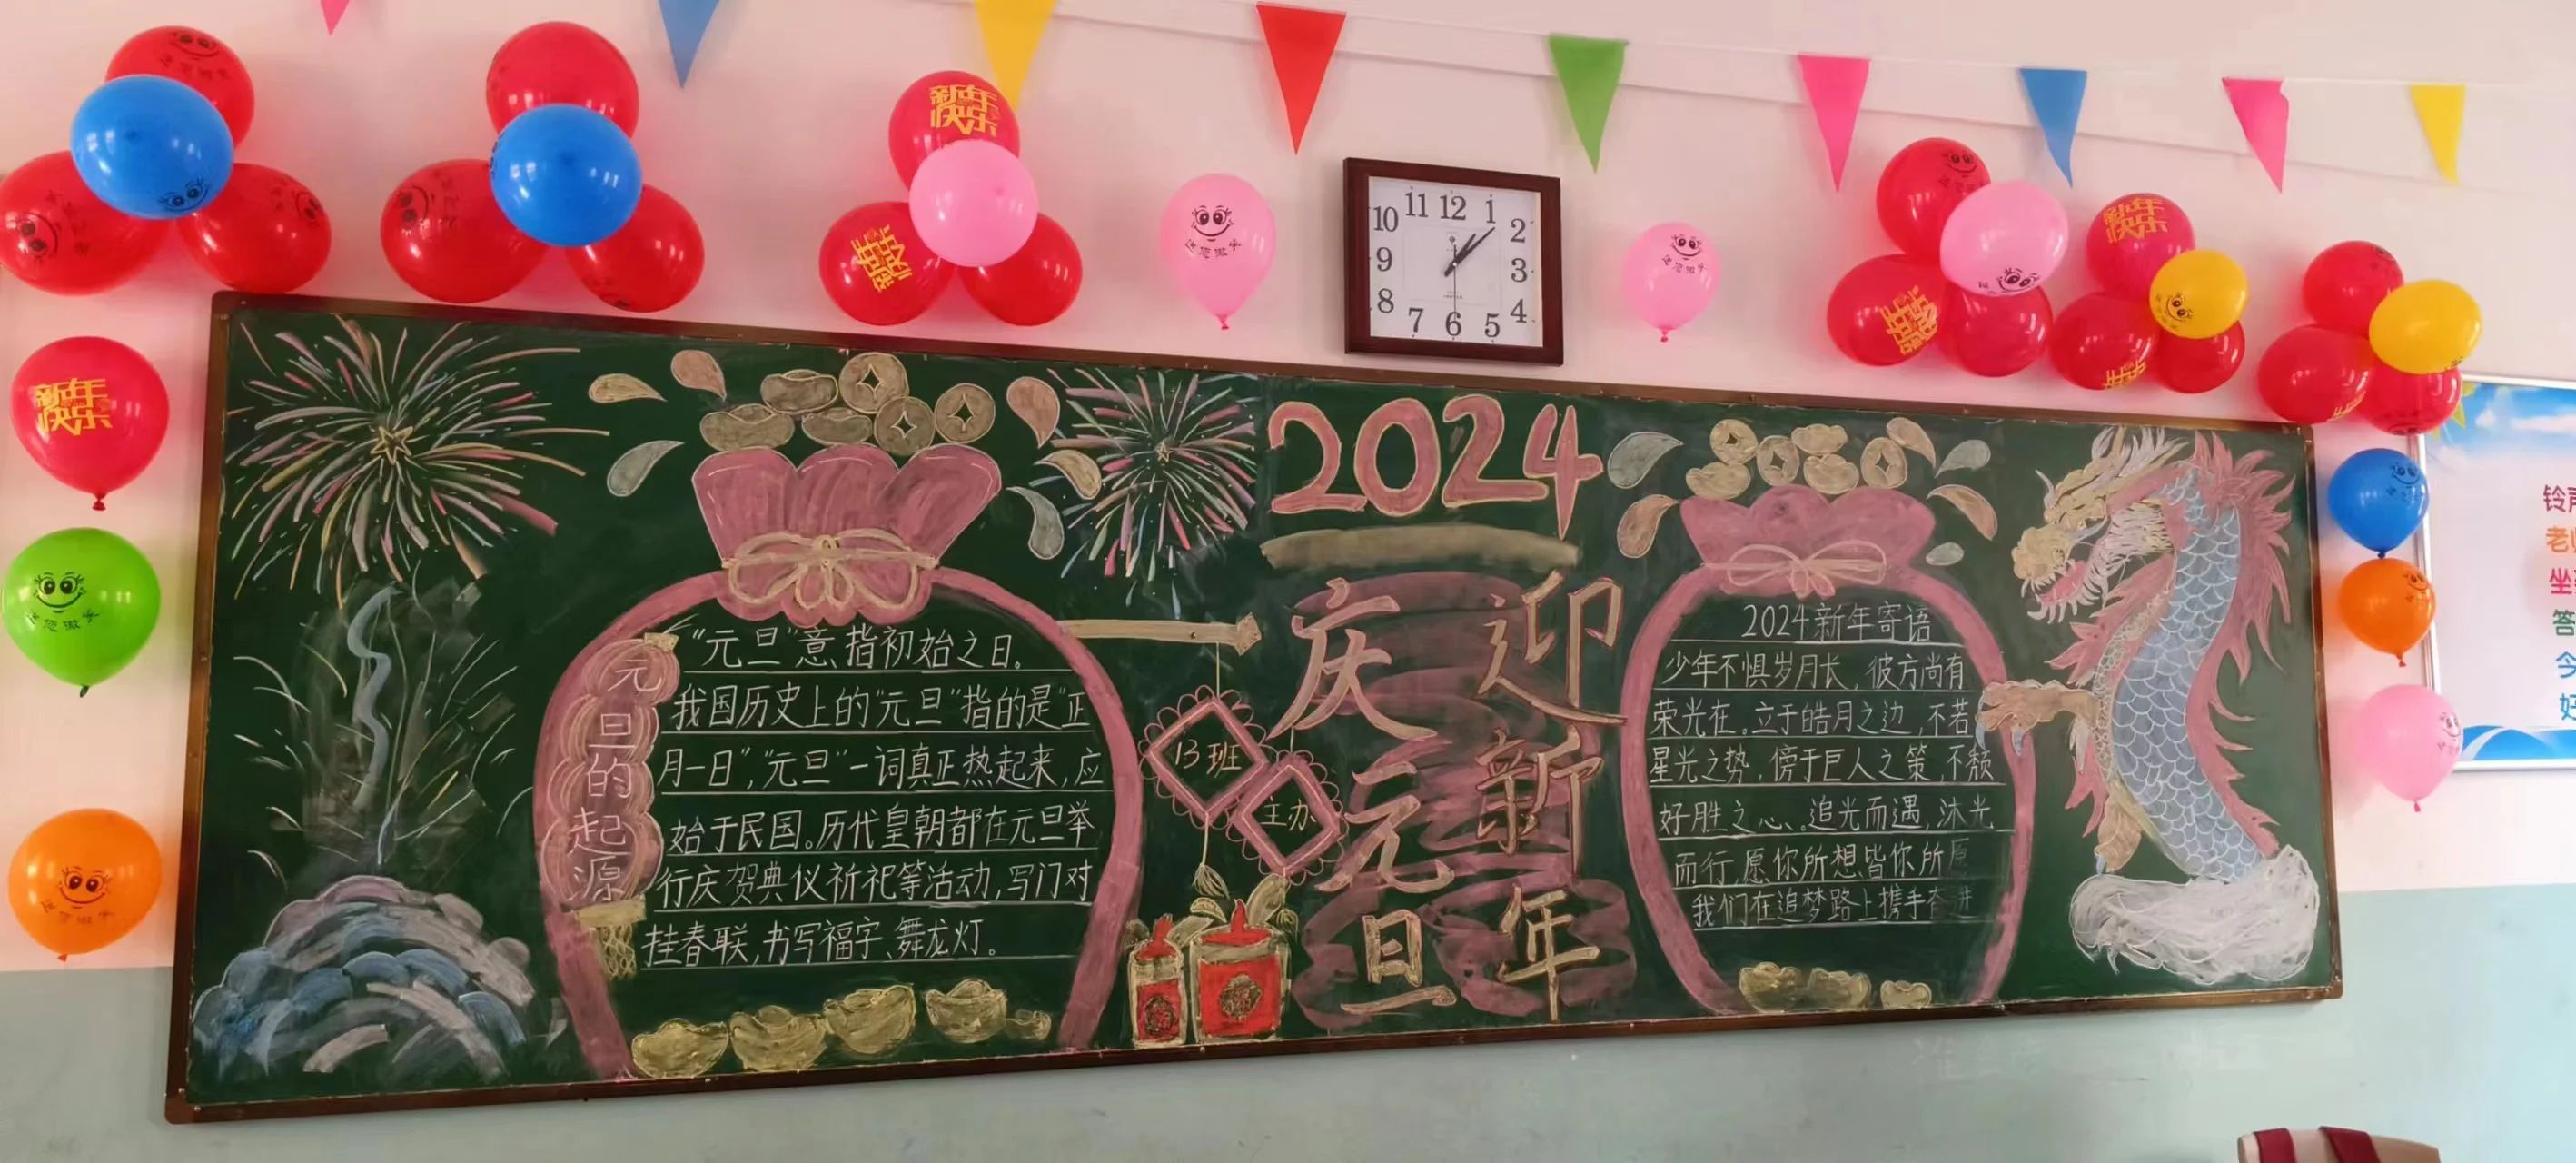 新年
快乐
新年
快乐
新年
快乐
新年
快乐
新年
快乐
11 12 1
10 2
9 3
8 4
7 6 5
2024
庆元旦
迎新年
元旦的起源
“元旦”意指初始之日。
我国历史上的“元旦”指的是“正
月一日”，“元旦”一词真正热起来，应
始于民国。历代皇朝都在元旦举
行庆贺典仪祈祀等活动，写门对
挂春联，书写福字、舞龙灯。
13班
主办
2024新年寄语
少年不惧岁月长，彼方尚有
荣光在。立于皓月之边，不若
星光之势，傍于巨人之策，不颓
好胜之心、。追光而遇，沐光
而行，愿你所想皆你所愿
我们在追梦路上携手奋进
铃
老
坐
答
今
好